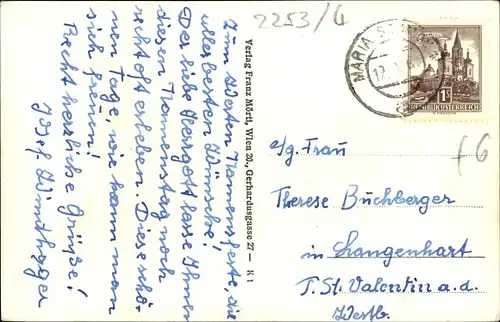 2253/6
Zum werten Namensfeste, die
allerbesten Wünsche!
Der liebe Herrgott lasse Ihnen
diesen Namenstag noch
recht oft erleben. Diese schö-
nen Tage, wie kann man
sich freuen!
Recht herzliche Grüße!
Josef
Verlag Franz Mörtl, Wien 20., Gerhardusgasse 27 — K 1
MARIA
12.
1S
REPUBLIK ÖSTERREICH
f6
Frau
Therese Buchberger
in Langenhart
P. St. Valentin a. d.
Westb.